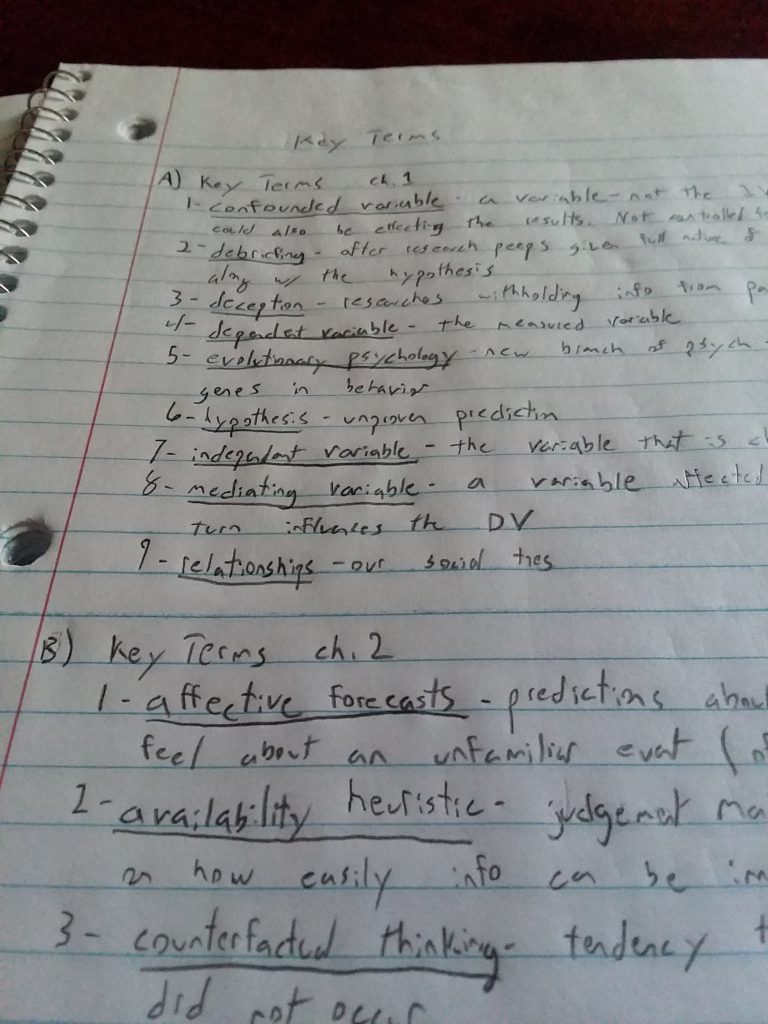 Key Terms
A) Key Terms ch. 1
1- confounded variable - a variable - not the
could also be effecting the results. Not controlled
2- debriefing - after research peeps given full nature of
along w/ the hypothesis
3- deception - researches withholding info from pa
4- dependet variable - the measured variable
5- evolutionary psychology - new branch of psych
genes in behavior
6- hypothesis - unproven prediction
7- independant variable - the variable that is
8- mediating variable - a variable affected
turn influences the DV
9- relationships - our social ties
B) Key Terms ch. 2
1- affective forecasts - predictions about
feel about an unfamiliar event (
2- availability heuristic - judgement ma
on how easily info can be im
3- counterfactual thinking - tendency t
did not occur